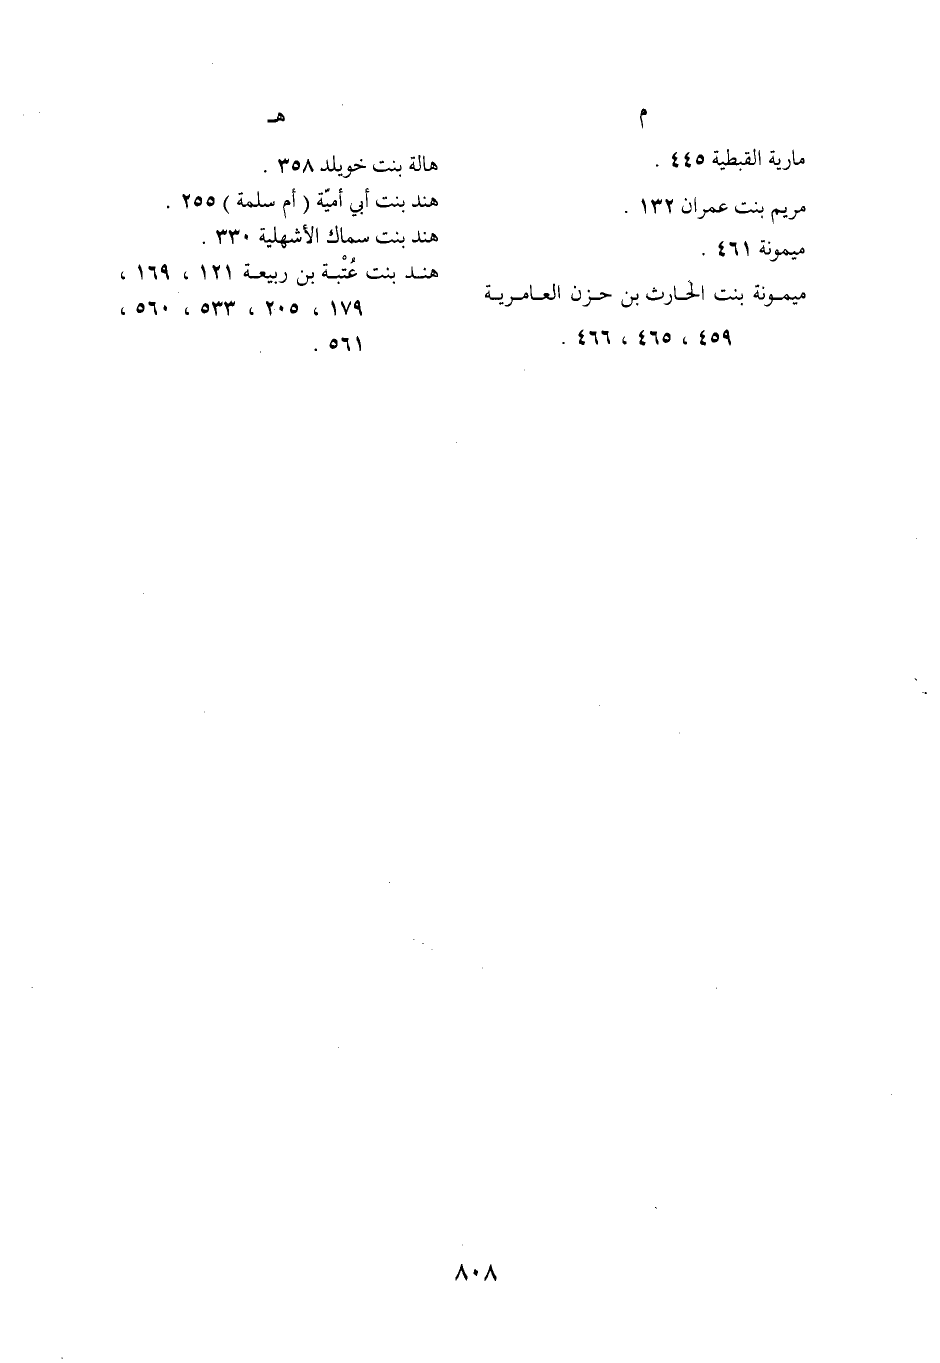 م
مارية القبطية ٤٤٥ .
مريم بنت عمران ١٣٢ .
ميمونة ٤٦١ .
ميمـونة بنت الحـارث بن حـزن العـامـريـة
٤٥٩ ، ٤٦٥ ، ٤٦٦ .
هـ
هالة بنت خويلد ٣٥٨ .
هند بنت أبي أميّة ( أم سلمة ) ٢٥٥ .
هند بنت سماك الأشهلية ٣٣٠ .
هنـد بنت عُتْبـة بن ربيعـة ١٢١ ، ١٦٩ ،
١٧٩ ، ٢٠٥ ، ٥٣٣ ، ٥٦٠ ،
٥٦١ .
٨٠٨